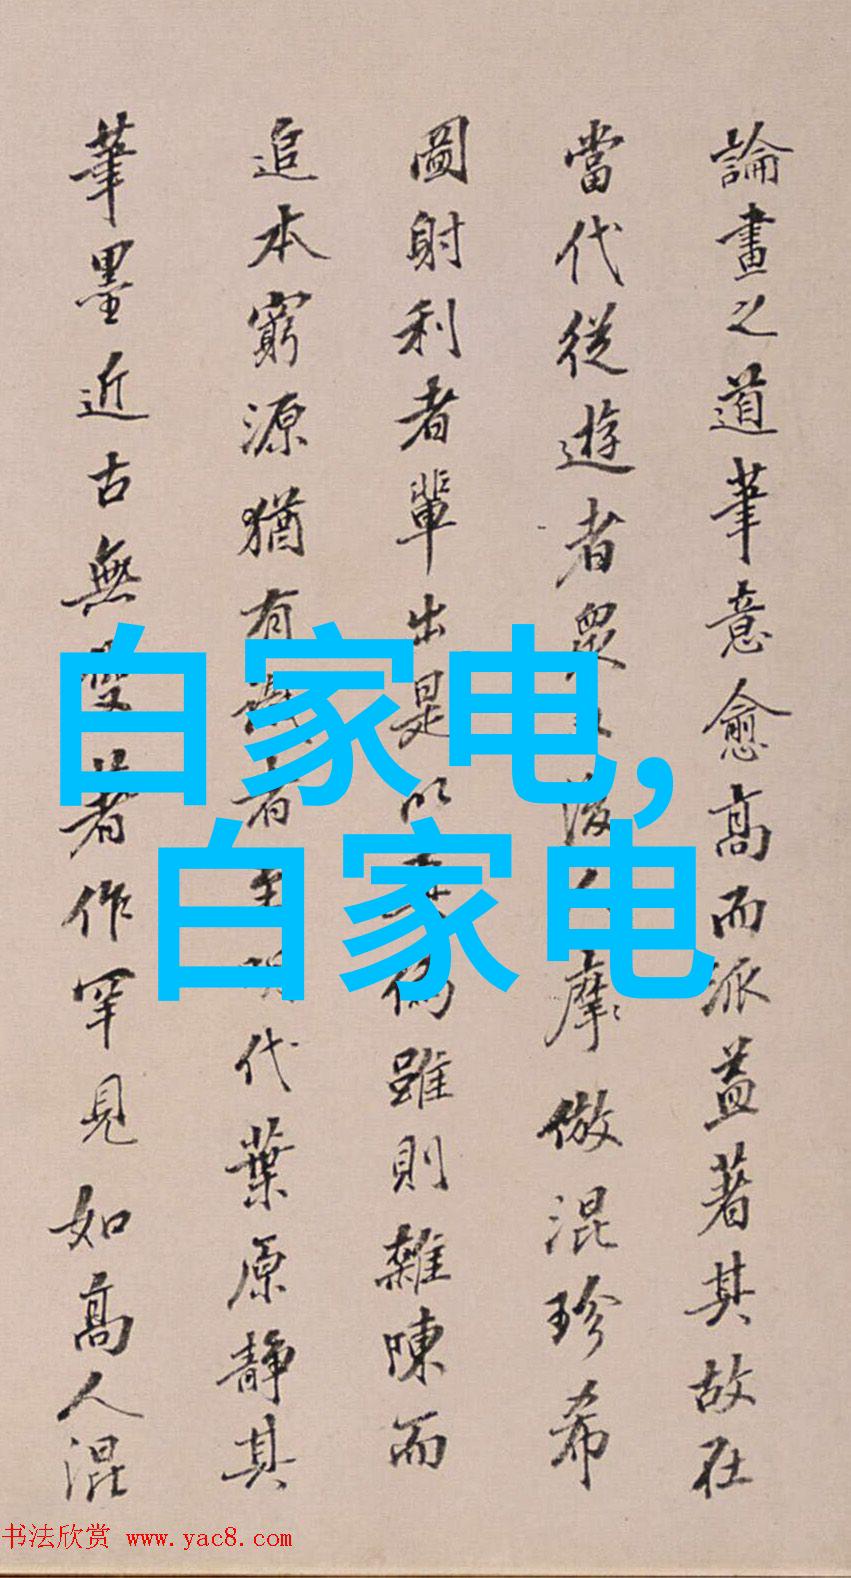 論畫之道筆意愈高而派益著其故在
當代從遊者眾後人摩倣混珍希
圖射利者輩出是以偽雖則雜陳而
追本窮源猶有者代葉原靜其
筆墨近古無雙著作罕見如高人混
白家电,
白家电
书法欣赏 www.yac8.com